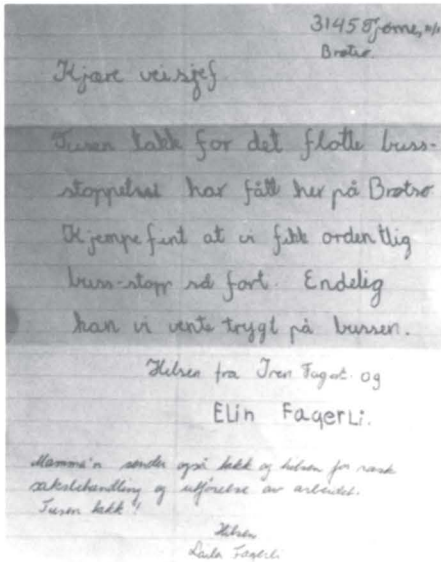 3145 Tjøme,
Brøtsø.
Kjære veisjef.
Tusen takk for det flotte buss-
stoppet vi har fått her på Brøtsø
Kjempefint at vi fikk ordentlig
buss-stopp så fort. Endelig
kan vi vente trygt på bussen.
Hilsen fra Iren Fagerli og
ELin FagerLi.
Mamma'n sender også takk og hilsen for rask
saksbehandling og utførelse av arbeidet.
Tusen takk!
Hilsen
Laila Fagerli